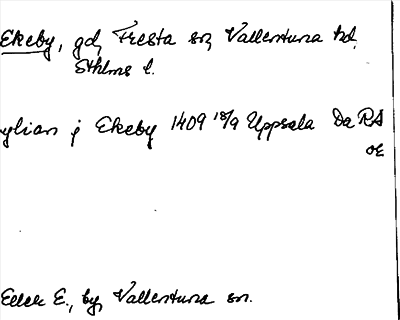 Ekeby, gd, Fresta sn, Vallentuna hd,
Sthlms l.
ylian j Ekeby 1409 18/9 Uppsala Da RA
OE
Eller E., by, Vallentuna sn.